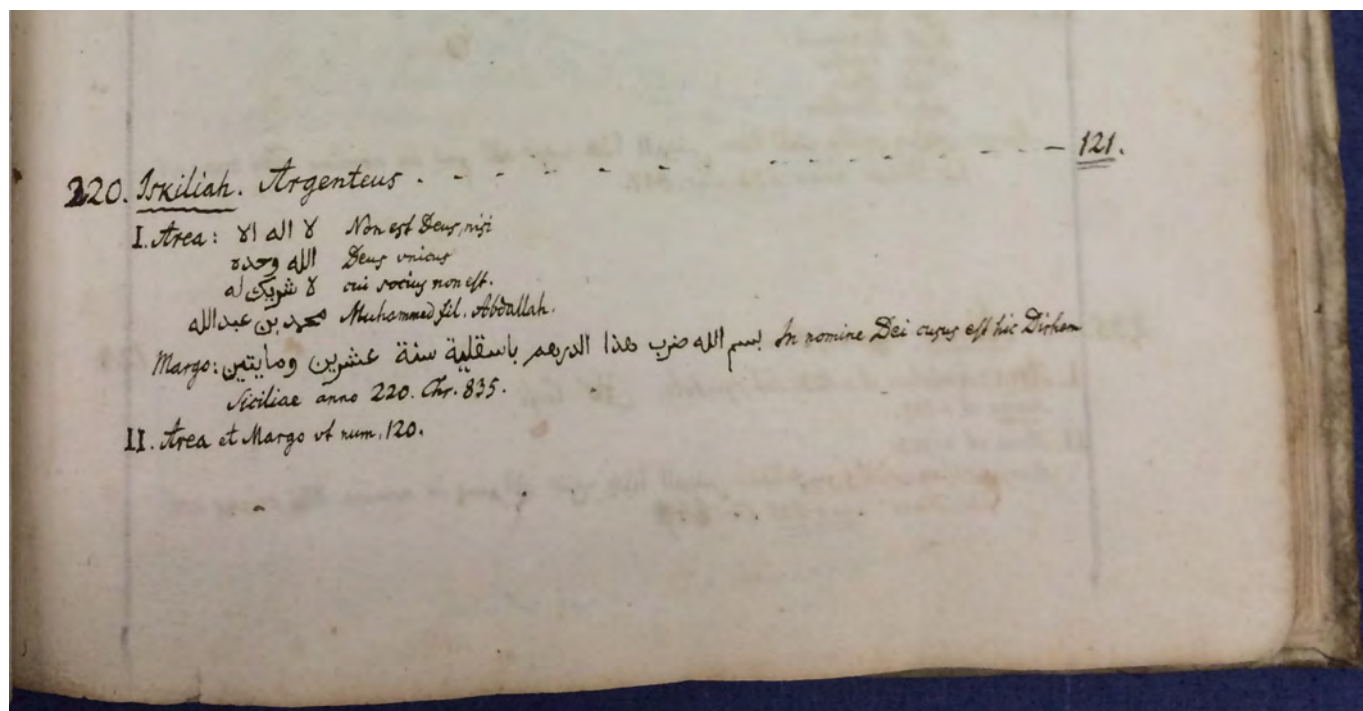 220. Iskiliah. Argenteus . - - - - - - - - - - - - - 121.
I. Area: لا اله الا Non est Deus, nisi
الله وحده Deus unicus
لا شريك له cui socius non est.
محمد بن عبدالله Muhammed fil. Abdallah.
Margo: بسم الله ضرب هذا الدرهم باسقلية سنة عشرين ومايتين In nomine Dei cusus est hic Dirhem
Siciliae anno 220. Chr. 835.
II. Area et Margo vt num. 120.